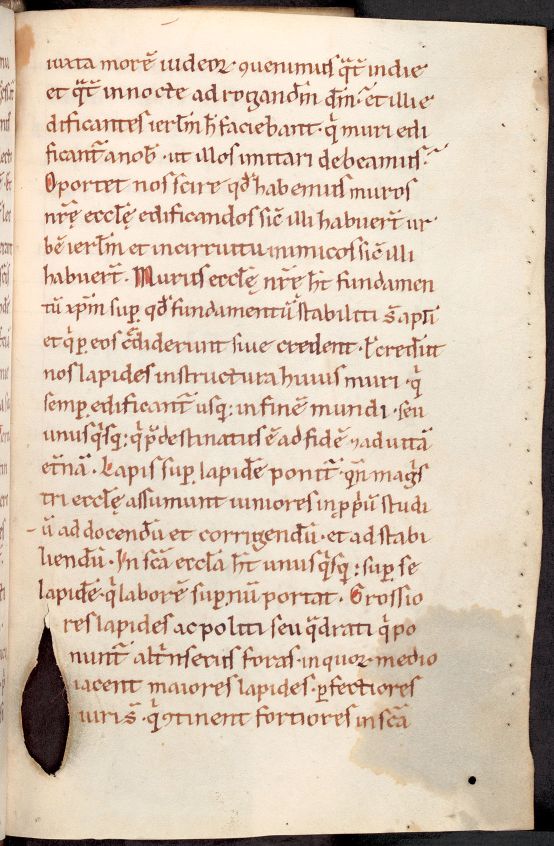 iuxta morē iudeoꝝ ꝯuenimus q̄t̄ in die
et q̄t̄ in nocte ad rogandū dn̄m. et illi e
dificantes ierl̄m h̄ faciebant. q̇ muri edi
ficant̄ a nob̄. ut illos imitari debeamus.
Oportet nos scire qd̄ habemus muros
nr̄ę eccl̄ę edificandos sic̄ illi habuer̄t ur
bē ierl̄m et in circuitu inimicos sic̄ illi
habuer̄t. Murus eccl̄ę nr̄ę h̄t fundamen
tū xp̄m sup̱ qd̄ fundamentū stabiliti s̄ apl̄i
et q̇ p̱ eos c̄diderunt siue credent. ł credūt
nos lapides in structura huius muri. q̇
semp̱ edificant̄ usq; in finē mundi. seu
unusq̇sq; q̇ p̄destinatus ē ad fidē ⁊ ad uitā
et̄nā. Lapis sup̱ lapidē ponit̄. qn̄ mag̅s
tri eccl̄ę assumunt iuniores in ꝓpriū studi
ū ad docendū et corrigendū. et ad stabi
liendū. In sc̄a eccl̄a h̄t unusq̇sq; sup̱ se
lapidē. q̇ laborē sup̱ nū portat. Grossio
res lapides ac politi seu q̄drati q̇ po
nunt̄ alt̄nsecus foras. in quoꝝ medio
iacent maiores lapides. ꝑfectiores
uiri s̄. q̇ ꝯtinent fortiores in sc̄a